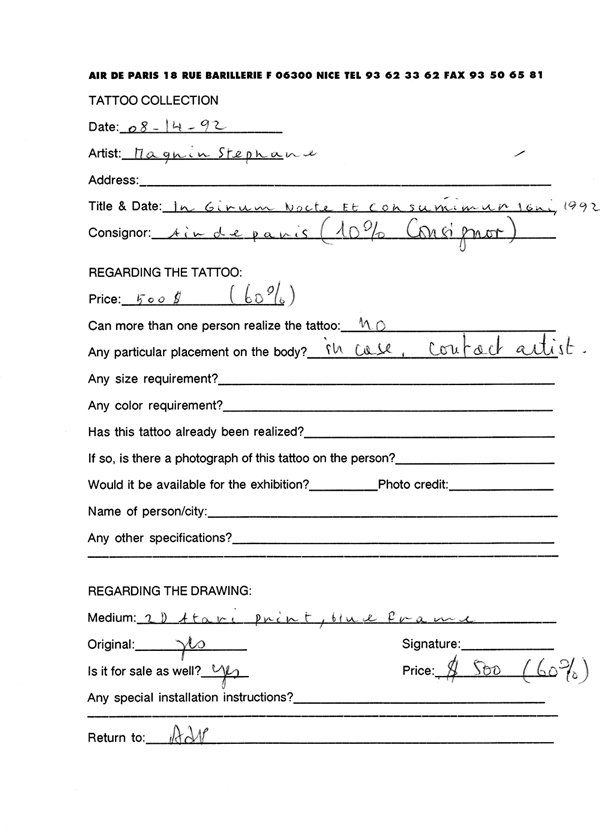 AIR DE PARIS 18 RUE BARILLERIE F 06300 NICE TEL 93 62 33 62 FAX 93 50 65 81
TATTOO COLLECTION
Date: 08-14-92
Artist: Magnin Stephane
Address:
Title & Date: In Girum Nocte Et Consumimur Igni, 1992
Consignor: Air de paris (10% Consignor)
REGARDING THE TATTOO:
Price: 500$ (60%)
Can more than one person realize the tattoo: no
Any particular placement on the body? in case, contact artist.
Any size requirement?
Any color requirement?
Has this tattoo already been realized?
If so, is there a photograph of this tattoo on the person?
Would it be available for the exhibition? Photo credit:
Name of person/city:
Any other specifications?
REGARDING THE DRAWING:
Medium: 2D Atari print, blue frame
Original: yes Signature:
Is it for sale as well? yes Price: $ 500 (60%)
Any special installation instructions?
Return to: AdP